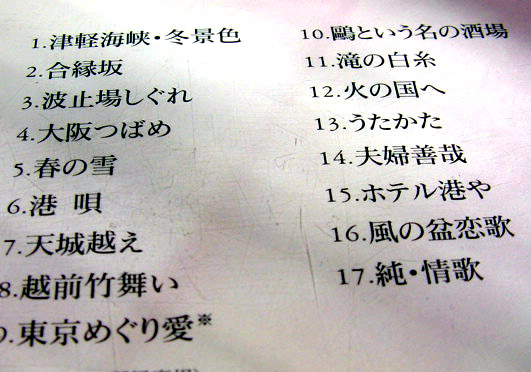 1.津軽海峡・冬景色
2.合縁坂
3.波止場しぐれ
4.大阪つばめ
5.春の雪
6.港 唄
7.天城越え
8.越前竹舞い
9.東京めぐり愛※
10.鷗という名の酒場
11.滝の白糸
12.火の国へ
13.うたかた
14.夫婦善哉
15.ホテル港や
16.風の盆恋歌
17.純・情歌